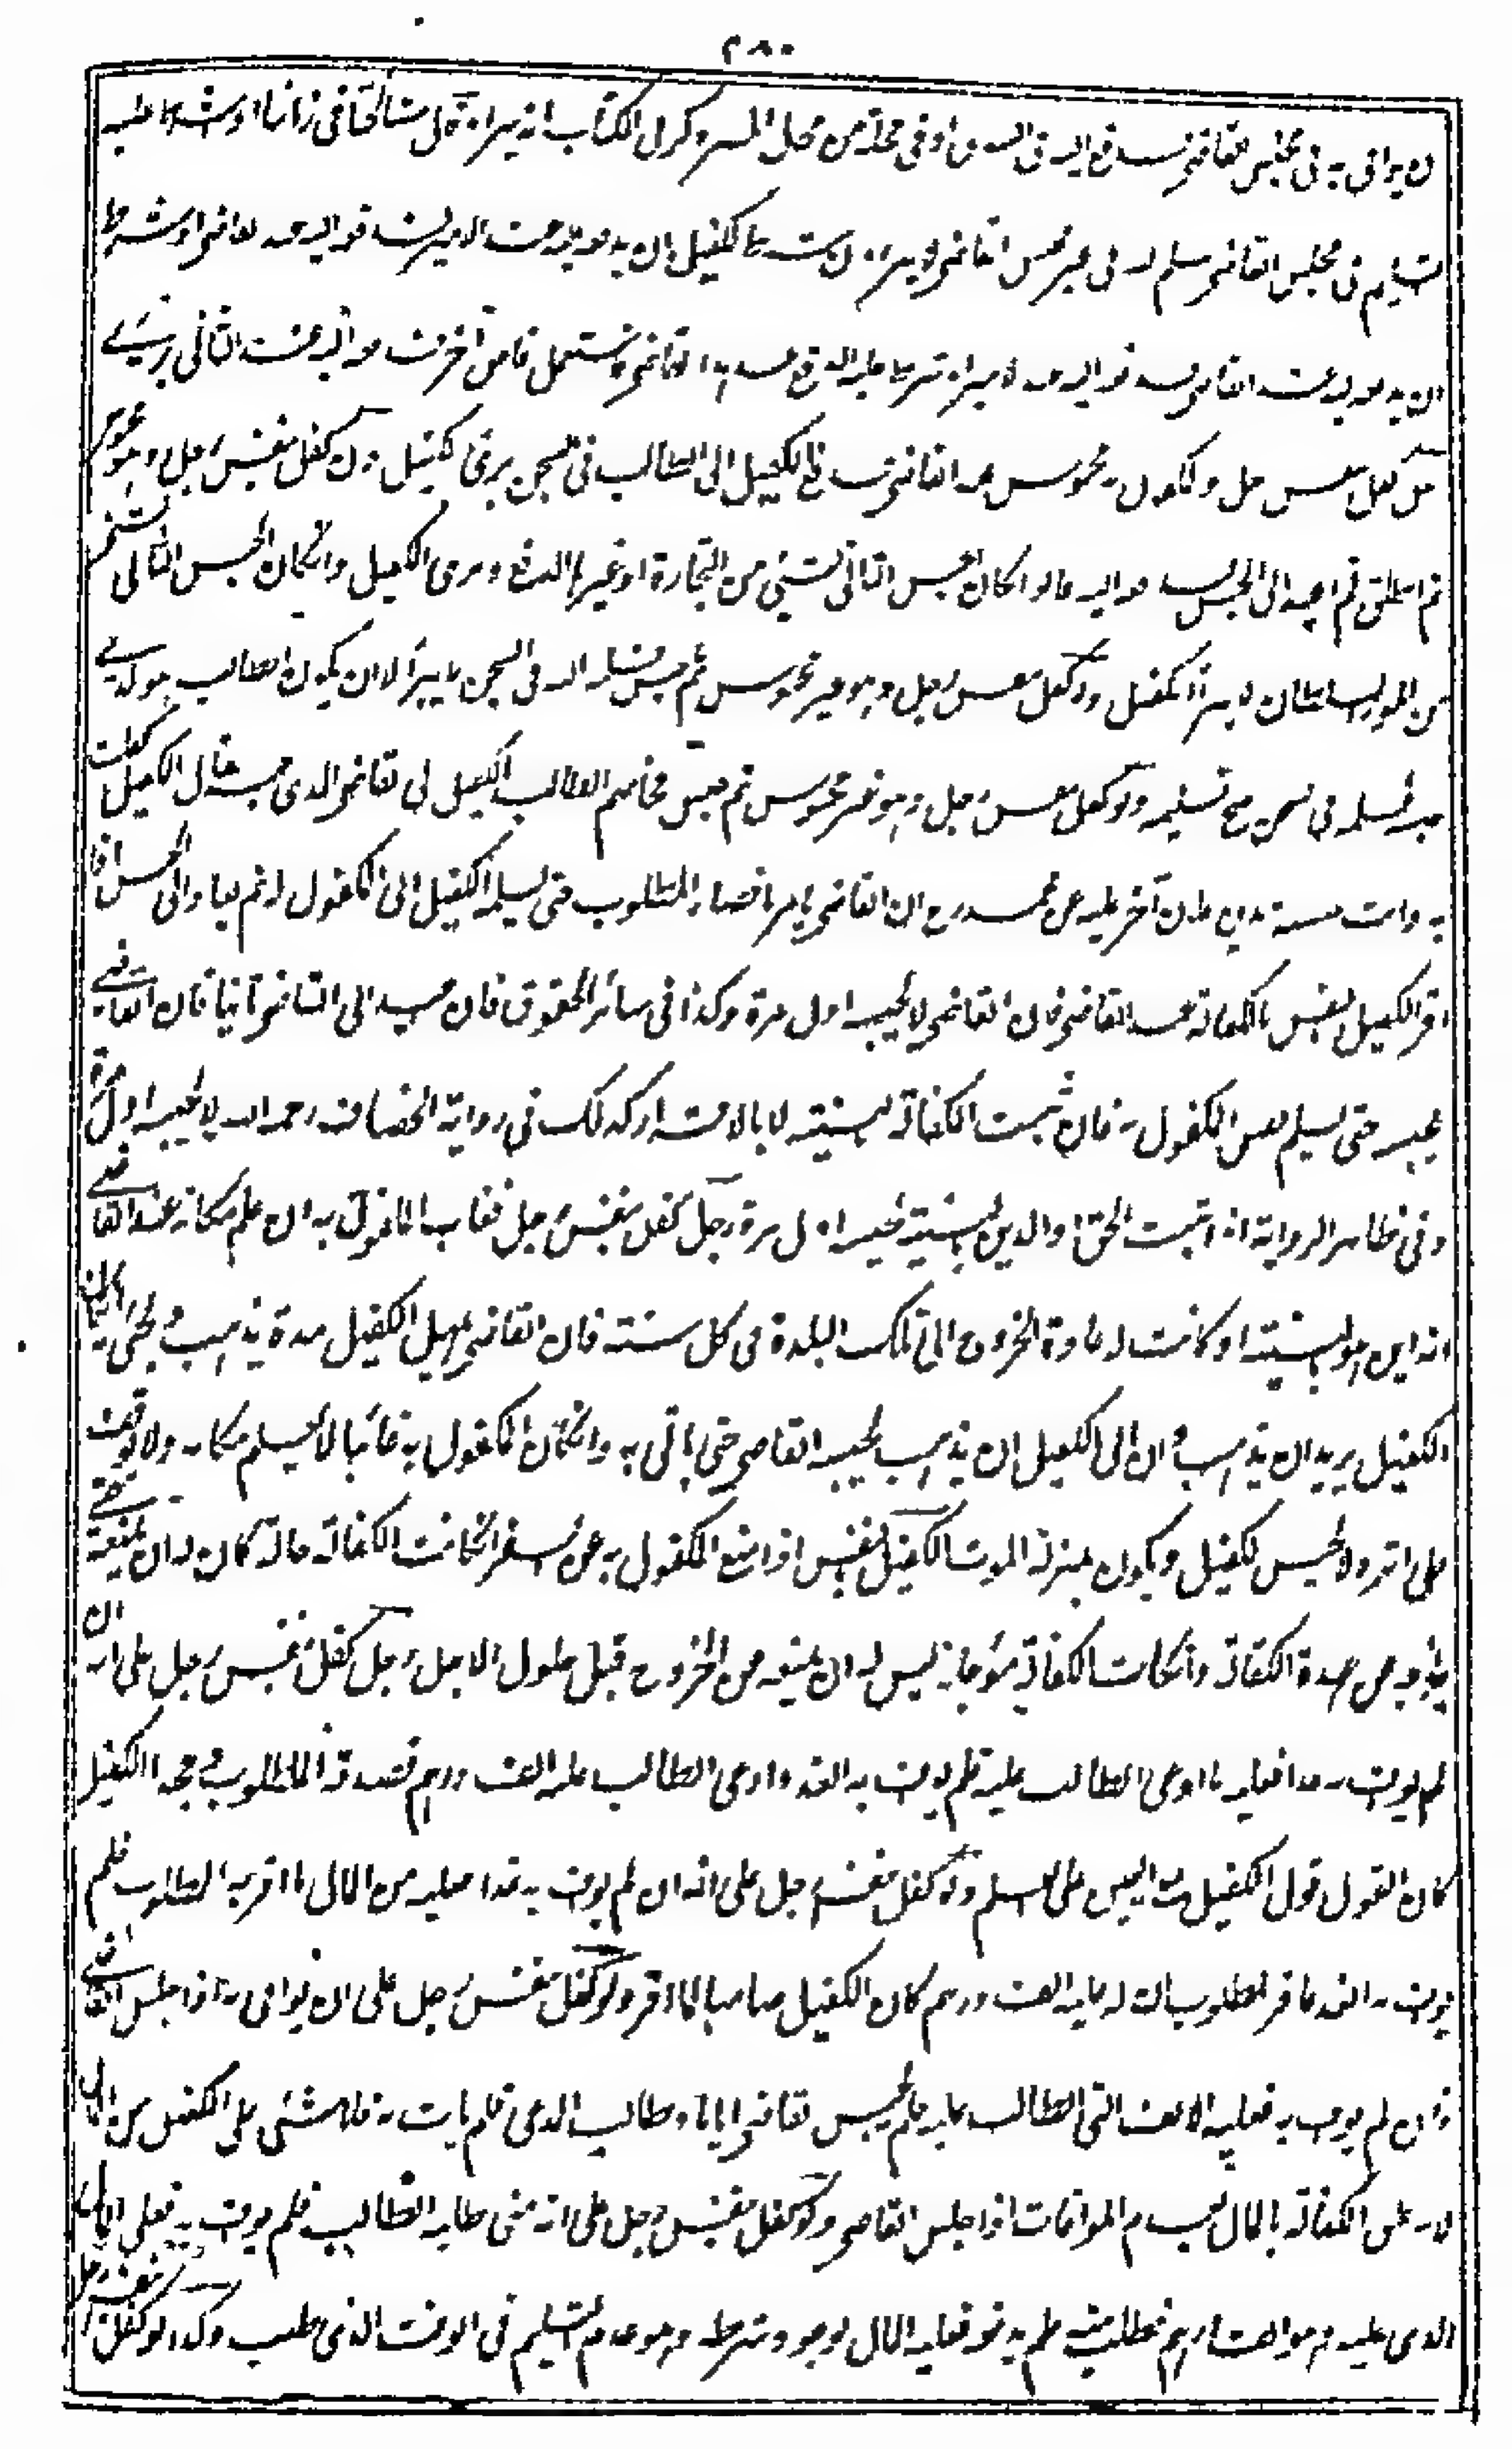 ٢٨٠
ان يوافى به فى مجلس القاضى فدفع اليه فى السوق او فى محلة من محال المصر وذكر فى الكتاب انه يبرأ قول مشائخنا فى زماننا او شرط عليه
التسليم فى مجلس القاضى سلم له فى غير مجلس القاضى لا يبرأ الكفيل ان يدفعه عند الامير فدفع اليه عند القاضى او شرط
ان يدفعه عند القاضى فدفع اليه عند الامير او شرط عليه الدفع عند هذا القاضى فاستعمل قاض آخر فدفع اليه عند الثانى برئ
رجل كفل بنفس رجل والمكفول به محبوس عند القاضى فدفع الكفيل الى الطالب فى السجن برئ الكفيل ولو كفل بنفس رجل وهو محبوس
ثم اطلق ثم اعيد الى الحبس فدفعه اليه قالوا ان كان الحبس الثانى بشئ من التجارة او غيرها الدفع وبرئ الكفيل وان كان الحبس الثانى بشئ
من امور السلطان لا يبرأ الكفيل ولو كفل بنفس رجل وهو غير محبوس ثم حبس فسلمه اليه فى السجن لا يبرأ الا ان يكون الطالب هو الذى
حبسه فسلمه فى السجن صح تسليمه ولو كفل بنفس رجل وهو غير محبوس ثم حبس فخاصم الطالب الكفيل الى القاضى الذى حبسه فقال الكفيل كفلت
به وانت حبسته بدين فلان آخر عليه عن محمد رح ان القاضى يأمر باحضار المطلوب حتى يسلمه الكفيل الى المكفول له ثم يعاد الى الحبس اذا
اقر الكفيل بالنفس بالكفالة عند القاضى فان القاضى لا يحبسه اول مرة وكذا فى سائر الحقوق فان عيد الى القاضى ثانيا فان القاضى
يحبسه حتى يسلم نفس المكفول به فان ثبتت الكفالة ببينة لا بالاقرار كذلك فى رواية الخصاف رحمه الله لا يحبسه اول مرة
وفى ظاهر الرواية اذا ثبت الحق او الدين بالبينة يحبسه اول مرة رجل كفل بنفس رجل فغاب المكفول به ان علم مكانه عند القاضى
انه اين هو بالبينة او كانت له عادة الخروج الى تلك البلدة فى كل سنة فان القاضى يمهل الكفيل مدة يذهب ويجئ به ان كان
الكفيل يريد ان يذهب وان ابى الكفيل ان يذهب يحبسه القاضى حتى ياتى به وان كان المكفول به غائبا لا يعلم مكانه ولا يوقف
على اثره لا يحبس الكفيل ويكون بمنزلة الموت الكفيل بالنفس اذا منع المكفول به عن السفر ان كانت الكفالة حالة كان له ان يمنعه حتى
يخرجه عن عهدة الكفالة وان كانت الكفالة مؤجلة ليس له ان يمنعه من الخروج قبل حلول الاجل رجل كفل بنفس رجل على انه ان
لم يوف به غدا فعليه ما ادعى الطالب عليه فلم يوف به الغد وادعى الطالب عليه الف درهم فصدقه المطلوب وجحد الكفيل
كان القول قول الكفيل مع اليمين على العلم ولو كفل بنفس رجل على انه ان لم يوف به غدا فعليه من المال ما اقر به المطلوب فلم
يوف به الغد فاقر المطلوب ان له عليه الف درهم كان الكفيل ضامنا لما اقر ولو كفل بنفس رجل على ان يوافى به اذا جلس القاضى
فان لم يوف به فعليه الالف التى للطالب عليه فلم يجلس القاضى اياما وطالب المدعى فلم يات به فلا شئ على الكفيل من المال
لانه علق الكفالة بالمال بعدم الموافات اذا جلس القاضى ولو كفل بنفس رجل على انه متى طالبه الطالب فلم يوف به فعليه المال
الذى عليه وهو الف درهم فطلب منه فلم يدفعه فعليه المال لوجود شرطه وهو عدم التسليم فى الوقت الذى طلب وكذا لو كفل بنفس رجل